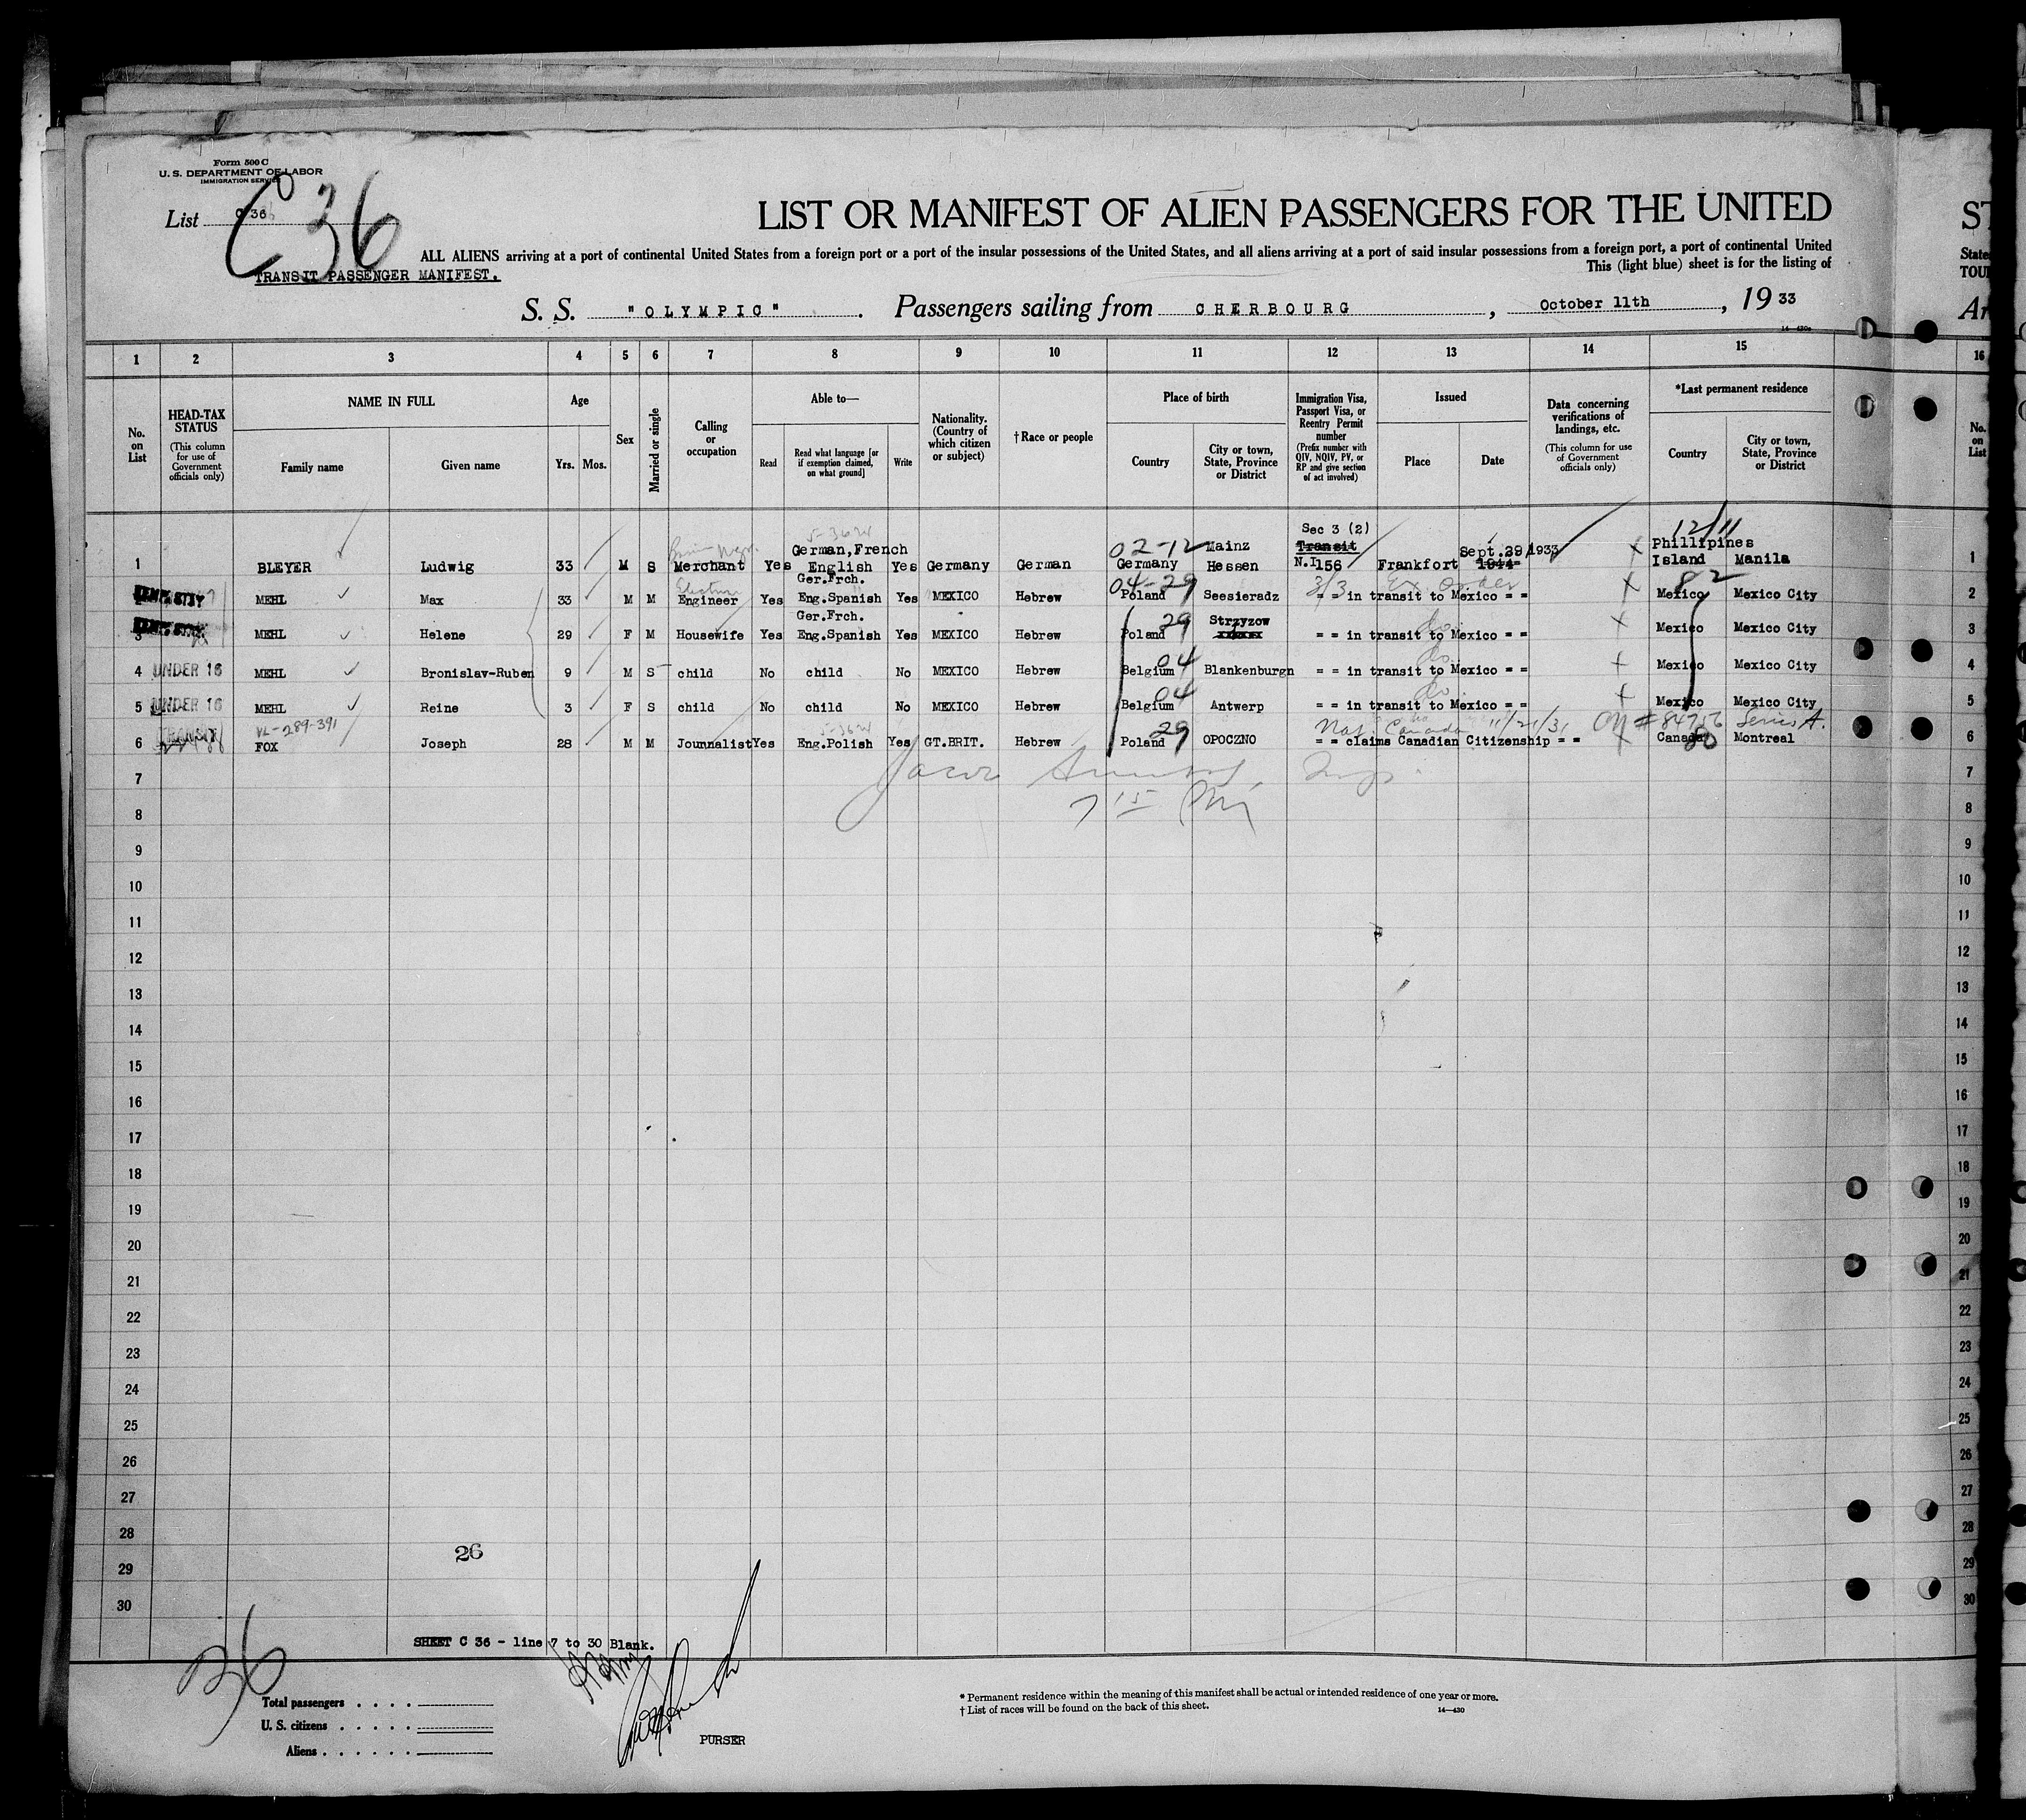 Form 500 C
U. S. DEPARTMENT OF LABOR
IMMIGRATION SERVICE
List C 36
C 36
LIST OR MANIFEST OF ALIEN PASSENGERS FOR THE UNITED
ST
ALL ALIENS arriving at a port of continental United States from a foreign port or a port of the insular possessions of the United States, and all aliens arriving at a port of said insular possessions from a foreign port, a port of continental United
State
This (light blue) sheet is for the listing of
TOU
TRANSIT PASSENGER MANIFEST.
S. S. "OLYMPIC". Passengers sailing from CHERBOURG, October 11th, 19 33
Ar
1 2 3 4 5 6 7 8 9 10 11 12 13 14 15 16
No. on List
HEAD-TAX STATUS (This column for use of Government officials only)
NAME IN FULL
Family name
Given name
Age
Yrs. Mos.
Sex
Married or single
Calling or occupation
Able to—
Read
Read what language [or if exemption claimed, on what ground]
Write
Nationality. (Country of which citizen or subject)
† Race or people
Place of birth
Country
City or town, State, Province or District
Immigration Visa, Passport Visa, or Reentry Permit number (Prefix number with QIV, NQIV, PV, or RP and give section of act involved)
Issued
Place
Date
Data concerning verifications of landings, etc. (This column for use of Government officials only)
*Last permanent residence
Country
City or town, State, Province or District
No. on List
1 BLEYER Ludwig 33 M S Merchant Yes German,French English Yes Germany German 02-12 Germany Mainz Hessen Sec 3 (2) Transit N.I 156 Frankfort Sept.29/1933 12/11 Phillipines Island Manila 1
2 MEHL Max 33 M M Engineer Yes Ger.Frch. Eng.Spanish Yes MEXICO Hebrew 04-29 Poland Seesieradz 3/3 Ex order = = in transit to Mexico = = 82 Mexico Mexico City 2
3 MEHL Helene 29 F M Housewife Yes Ger.Frch. Eng.Spanish Yes MEXICO Hebrew Poland 29 Strzyzow = = in transit to Mexico = = do Mexico Mexico City 3
4 UNDER 16 MEHL Bronislav-Ruben 9 M S child No child No MEXICO Hebrew Belgium 04 Blankenburgn = = in transit to Mexico = = do Mexico Mexico City 4
5 UNDER 16 MEHL Reine 3 F S child No child No MEXICO Hebrew Belgium 04 Antwerp = = in transit to Mexico = = do Mexico Mexico City 5
6 TRANSIT VL-289-391 FOX Joseph 28 M M Jounnalist Yes Eng.Polish Yes GT.BRIT. Hebrew Poland 29 OPOCZNO Nat. Canada 11/21/31 # 84756 Series A. = = claims Canadian Citizenship = = Canada 80 Montreal 6
7 7
7 15 PM
8 8
9 9
10 10
11 11
12 12
13 13
14 14
15 15
16 16
17 17
18 18
19 19
20 20
21 21
22 22
23 23
24 24
25 25
26 26
27 27
28 28
26
29 29
30 30
SHEET C 36 - line 7 to 30 Blank.
36
Total passengers . . . .
U. S. citizens . . . . .
Aliens . . . . . .
PURSER
* Permanent residence within the meaning of this manifest shall be actual or intended residence of one year or more.
† List of races will be found on the back of this sheet.
14—430